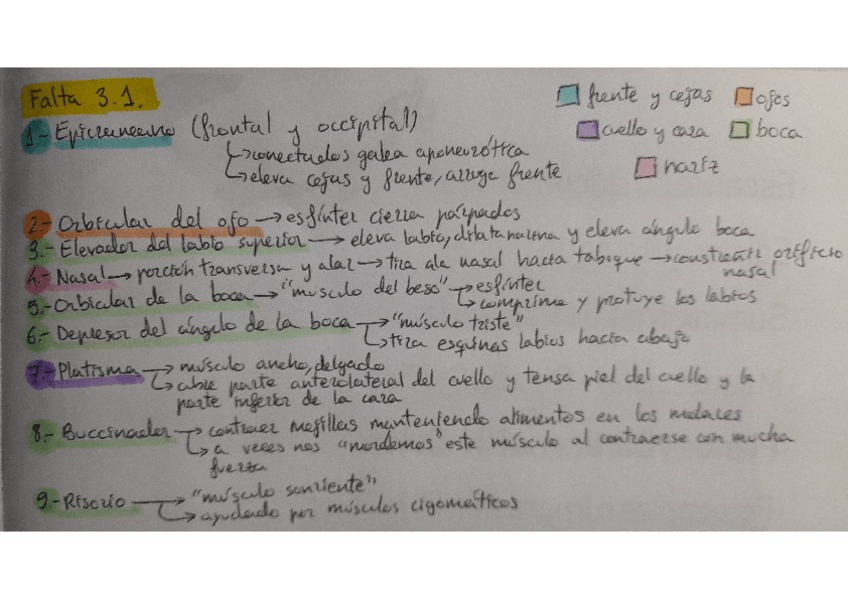 Falta 3.1.
frente y cejas
ojos
cuello y cara
boca
nariz
1- Epicraneano (frontal y occipital)
↳conectados galea aponeurótica
↳eleva cejas y frente, arruga frente
2.- Orbicular del ojo → esfínter cierra párpados
3.- Elevador del labio superior → eleva labio, dilata narina y eleva ángulo boca
4.- Nasal → porción transversa y alar → tira ala nasal hacia tabique → constreñir orificio
nasal
5.- Orbicular de la boca → "músculo del beso" → esfínter
↳ comprime y protuye los labios
6.- Depresor del ángulo de la boca → "músculo triste"
↳ tira esquinas labios hacia abajo
7.- Platisma → músculo ancho, delgado
↳ cubre parte anterolateral del cuello y tensa piel del cuello y la
parte inferior de la cara
8.- Buccinador → contraer mejillas manteniendo alimentos en los molares
↳ a veces nos "mordemos" este músculo al contraerse con mucha
fuerza
9.- Risorio → "músculo sonriente"
↳ ayudado por músculos cigomáticos